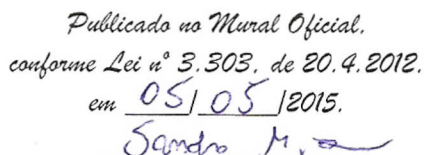 Publicado no Mural Oficial,
conforme Lei nº 3.303, de 20.4.2012.
em 05/ 05 /2015.
Sandro M.